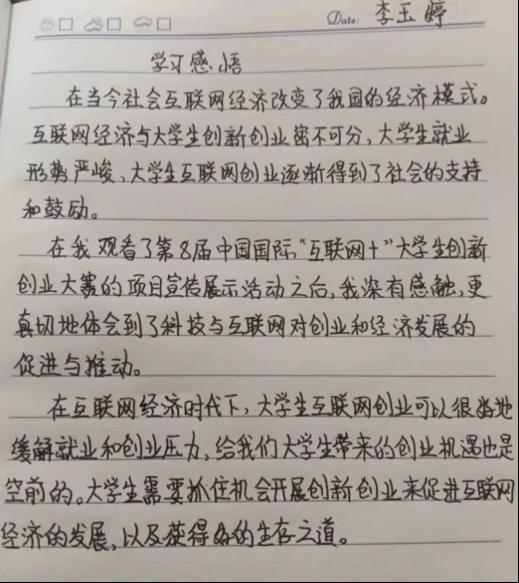 Date: 李玉婷
学习感悟
在当今社会互联网经济改变了我国的经济模式。
互联网经济与大学生创新创业密不可分,大学生就业
形势严峻、大学生互联网创业逐渐得到了社会的支持
和鼓励。
在我观看了第8届中国国际“互联网+”大学生创新
创业大赛的项目宣传展示活动之后,我深有感触,更
真切地体会到了科技与互联网对创业和经济发展的
促进与推动。
在互联网经济时代下,大学生互联网创业可以很好地
缓解就业和创业压力,给我们大学生带来的创业机遇也是
空前的。大学生需要抓住机会开展创新创业来促进互联网
经济的发展,以及获得好的生存之道。